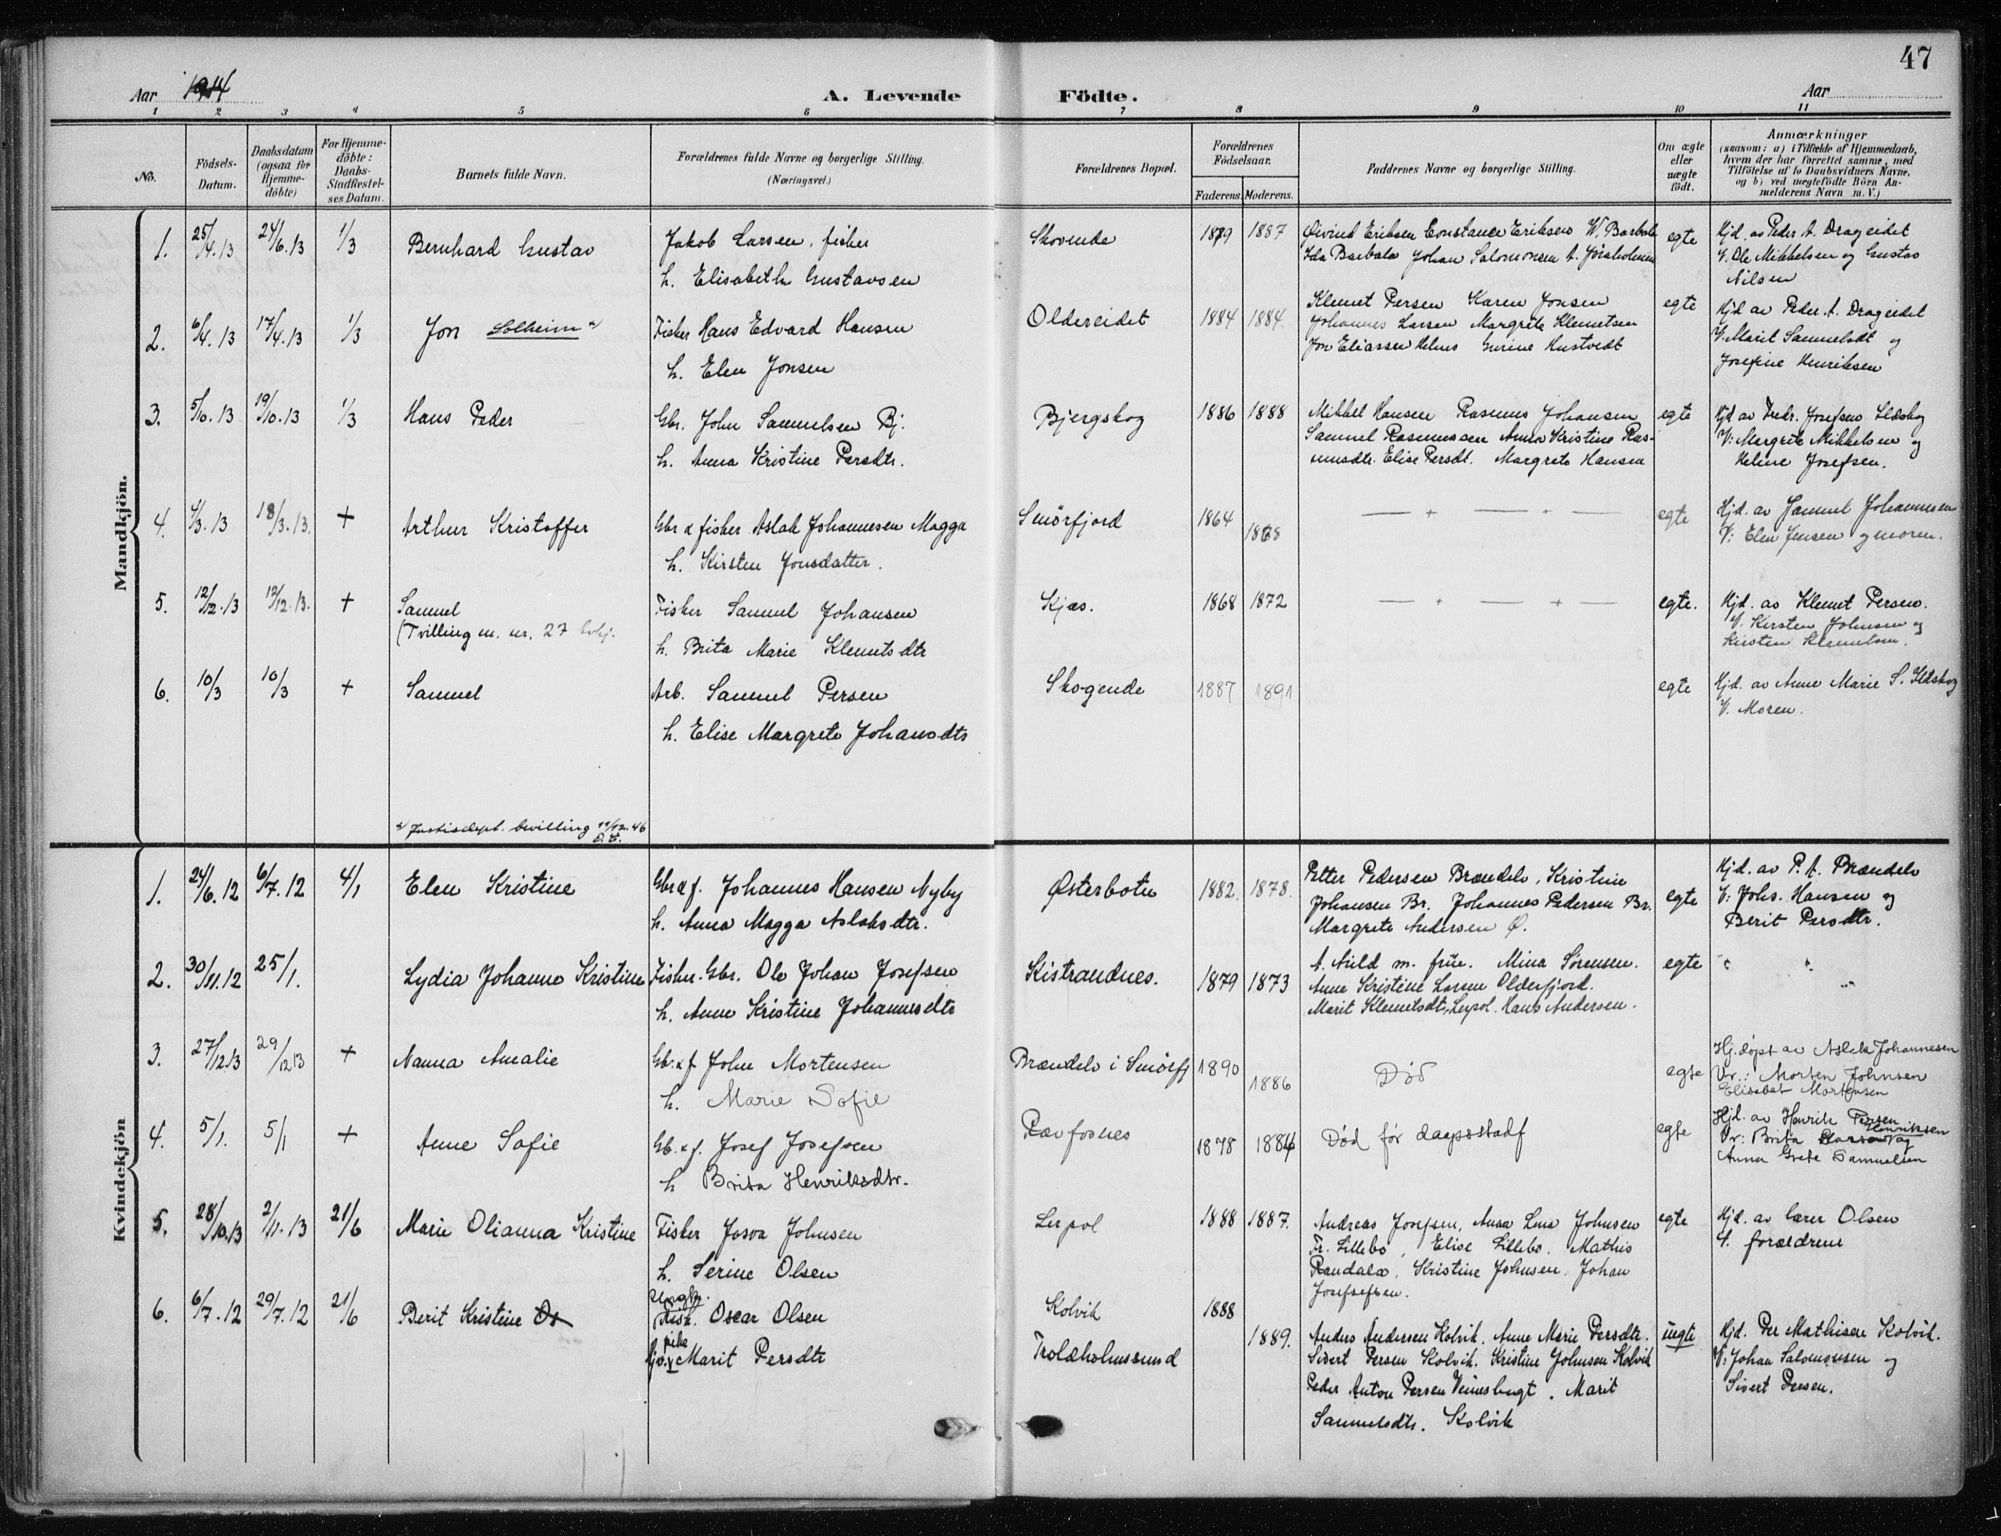 47
Aar 1914
A. Levende Födte.
Aar
1 2 3 4 5 6 7 8 9 10 11
No.
Födsels-Datum.
Daabsdatum (ogsaa for Hjemme-döbte)
For Hjemme-döbte: Daabs-Stadfæstel-ses Datum.
Barnets fulde Navn.
Forældrenes fulde Navne og borgerlige Stilling.
(Næringsvei.)
Forældrenes Bopæl.
Forældrenes Födselsaar.
Faderens. Moderens.
Faddernes Navne og borgerlige Stilling.
Om ægte eller uægte födt.
Anmærkninger
(saasom: a) i Tilfælde af Hjemmedaab, hvem der har forrettet samme, med Tilföielse af to Daabsvidners Navne, og b) ved uegtefödte Börn An-melderens Navn m. V.)
Mandkjön.
1. 25/4.13 24/6.13 1/3 Bernhard Gustav
Jakob Larsen, fisker
h. Elisabeth Gustavsen
Skovende 1879 1887
Øivind Eriksen Constance Eriksen W. Barbala
Ida Barbala Johan Salomonsen
egte
Hjd. av Peder A. Drageidet
V. Ole Mikkelsen og Gustav
Nilsen
2. 6/4.13 17/4.13 1/3 Jon Solheim x)
Fisker Hans Edvard Hansen
h. Elen Jonsen
Oldereidet 1884 1884.
Klemet Persen Karen Jonsen
Johannes Larsen Margrete Klemetsen
Jon Eliassen Helnes Gurine Hustvedt
egte
Hjd av Peder A. Drageidet
V. Marit Samuelsdt og
Josefine Henriksen
3. 5/10.13 19/10.13 1/3 Hans Peder
Gbr. John Samuelsen Bj.
h. Anna Kristine Persdtr.
Bjergskog 1886 1888
Mikkel Hansen Rasmus Johansen
Samuel Rasmussen Anna Kristine Ras-
musdtr. Elise Persdt. Margrete Hansen
egte
Hjd av Fredr. Josefsen Ildskog
V: Margrete Mikkelsen og
Heline Josefsen.
4. 4/3.13 18/3.13. + Arthur Kristoffer
Gbr & fisker Aslak Johannesen Magga
h. Kirsten Jonsdatter.
Smörfjord 1864 1868
— + — — + —
egte
Hjd. av Samuel Johannesen
V: Elen Jensen og moren.
5. 12/12.13 12/12.13. + Samuel
(Tvilling m. nr. 27 kvkj.
Fisker Samuel Johansen
h. Brita Marie Klemetsdtr
Kjæs. 1868 1872
— + — — + —
egte.
Hjd. av Klemet Persen.
V. Kirsten Johnsen og
Kirsten Klemetsen.
6. 10/3 10/3 + Samuel
Arb. Samuel Persen
h. Elise Margrete Johansdtr
Skogende 1887 1891
egte
Hjd. av Anne Marie S. Ildskog
V. Moren.
x) Justisdept. bevilling 11/12.46
Kvindekjön
1. 24/6.12 6/7.12 4/1 Elen Kristine
Gbr & f. Johannes Hansen Nyby
h. Anna Magga Aslaksdtr.
Østerbotn 1882. 1878.
Petter Pedersen Brændelv, Kristine
Johansen Br. Johannes Pedersen Br.
Margrete Andersen Ø.
egte
Hjd. av P. A. Brændelv
V: Johs. Hansen og
Berit Persdtr.
2. 30/11.12 25/1. Lydia Johanne Kristine
Fisker. Gbr. Ole Johan Josefsen
h. Anne Kristine Johannesdtr
Kistrandnes. 1879 1873
A. Auld m. frue. Mina Sørensen.
Anne Kristine Larsen Olderfjord.
Marit Klemetsdt. Lerpol. Hans Andersen.
egte
3. 27/12.13 29/12.13 + Nanna Amalie
Gb. & f. John Mortensen
h. Marie Sofie
Brændelv i Smörfj 1890 1886
Död
egte
Hj. döpt av Aslak Johannesen
Vr.: Morten Johnsen
Elisabet Mortensen
4. 5/1. 5/1 + Anne Sofie
Gb. & f. Josef Josefsen
h Brita Henriksdtr.
Rævfosnes 1878 1884
Död før daapsstadf
egte
Hjd. av Henrik Persen
Vr: Brita Henriksen og
Anna Grete Samuelsen
5. 28/10.13 2/11.13 21/6 Marie Olianna Kristine
Fisker Josva Johnsen
h. Serine Olsen
Lerpol 1888 1887.
Andreas Josefsen, Anna Lena Johnsen
Fr. Lillebo, Elise Lillebo. Mathis
Randala. Kristine Johnsen. Johan
Josefsen.
egte
Hjd. av lærer Olsen
V. forældrene
6. 6/7.12 29/7.12 21/6 Berit Kristine Os
Ungk.
Fisk. Oscar Olsen
pike
Marit Persdtr
Kolvik 1888
Troldholmssund 1889.
Anders Andersen Kolvik. Anne Marie Persdtr.
Sivert Persen Kolvik. Kristine Johnsen Kolvik
Peder Anton Persen Veinesbugt. Marit
Samuelsdtr. Kolvik
uegte
Hjd. Per Mathisen Kolvik.
V: Johan Salomonsen og
Sivert Persen.